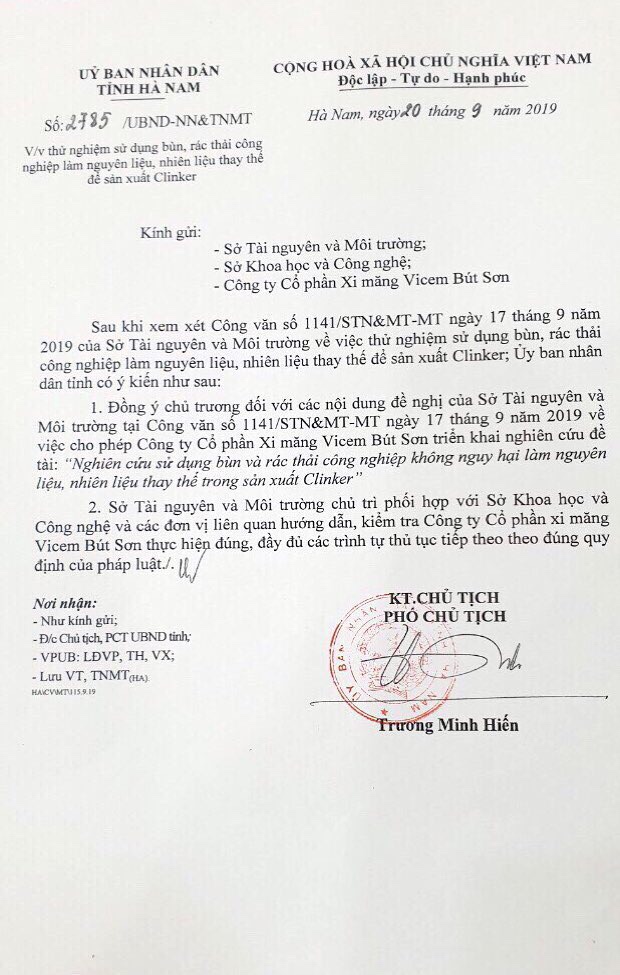 UỶ BAN NHÂN DÂN
TỈNH HÀ NAM
CỘNG HOÀ XÃ HỘI CHỦ NGHĨA VIỆT NAM
Độc lập - Tự do - Hạnh phúc
Số: 2785 /UBND-NN&TNMT
Hà Nam, ngày 20 tháng 9 năm 2019
V/v thử nghiệm sử dụng bùn, rác thải công
nghiệp làm nguyên liệu, nhiên liệu thay thế
để sản xuất Clinker
Kính gửi:
- Sở Tài nguyên và Môi trường;
- Sở Khoa học và Công nghệ;
- Công ty Cổ phần Xi măng Vicem Bút Sơn
Sau khi xem xét Công văn số 1141/STN&MT-MT ngày 17 tháng 9 năm
2019 của Sở Tài nguyên và Môi trường về việc thử nghiệm sử dụng bùn, rác thải
công nghiệp làm nguyên liệu, nhiên liệu thay thế để sản xuất Clinker; Ủy ban nhân
dân tỉnh có ý kiến như sau:
1. Đồng ý chủ trương đối với các nội dung đề nghị của Sở Tài nguyên và
Môi trường tại Công văn số 1141/STN&MT-MT ngày 17 tháng 9 năm 2019 về
việc cho phép Công ty Cổ phần Xi măng Vicem Bút Sơn triển khai nghiên cứu đề
tài: “Nghiên cứu sử dụng bùn và rác thải công nghiệp không nguy hại làm nguyên
liệu, nhiên liệu thay thế trong sản xuất Clinker”
2. Sở Tài nguyên và Môi trường chủ trì phối hợp với Sở Khoa học và
Công nghệ và các đơn vị liên quan hướng dẫn, kiểm tra Công ty Cổ phần xi măng
Vicem Bút Sơn thực hiện đúng, đầy đủ các trình tự thủ tục tiếp theo theo đúng quy
định của pháp luật./.
Nơi nhận:
- Như kính gửi;
- Đ/c Chủ tịch, PCT UBND tỉnh;
- VPUB: LĐVP, TH, VX;
- Lưu VT, TNMT(HA).
HA\CV\MT\115.9.19
KT.CHỦ TỊCH
PHÓ CHỦ TỊCH
ỦY BAN NHÂN HÀ NAM
Trương Minh Hiến